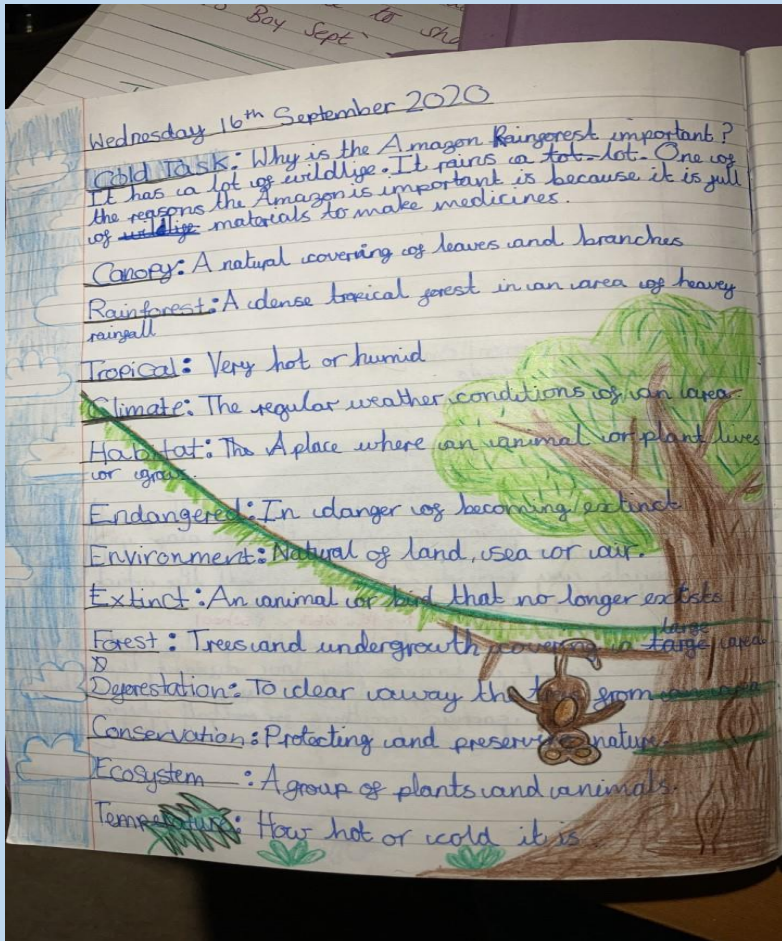 Boy Sept
to sho
Wednesday 16th September 2020
Cold Task: Why is the Amazon Rainforest important?
It has a lot of wildlife. It rains a tot lot. One of
the reasons the Amazon is important is because it is full
of wildlife materials to make medicines.
Canopy: A natural covering of leaves and branches
Rainforest: A dense tropical forest in an area of heavey
rainfall
Tropical: Very hot or humid
Climate: The regular weather conditions of an area.
Habitat: Th A place where an animal or plant lives
or grows.
Endangered: In danger of becoming extinct
Environment: Natural of land, sea or air.
Extinct: An animal or bird that no longer exists
large
Forest: Trees and undergrowth covering a targe area
D
Deforestation: To clear away the trees from an area
Conservation: Protecting and preserving nature
Ecosystem: A group of plants and animals.
Temperature: How hot or cold it is.